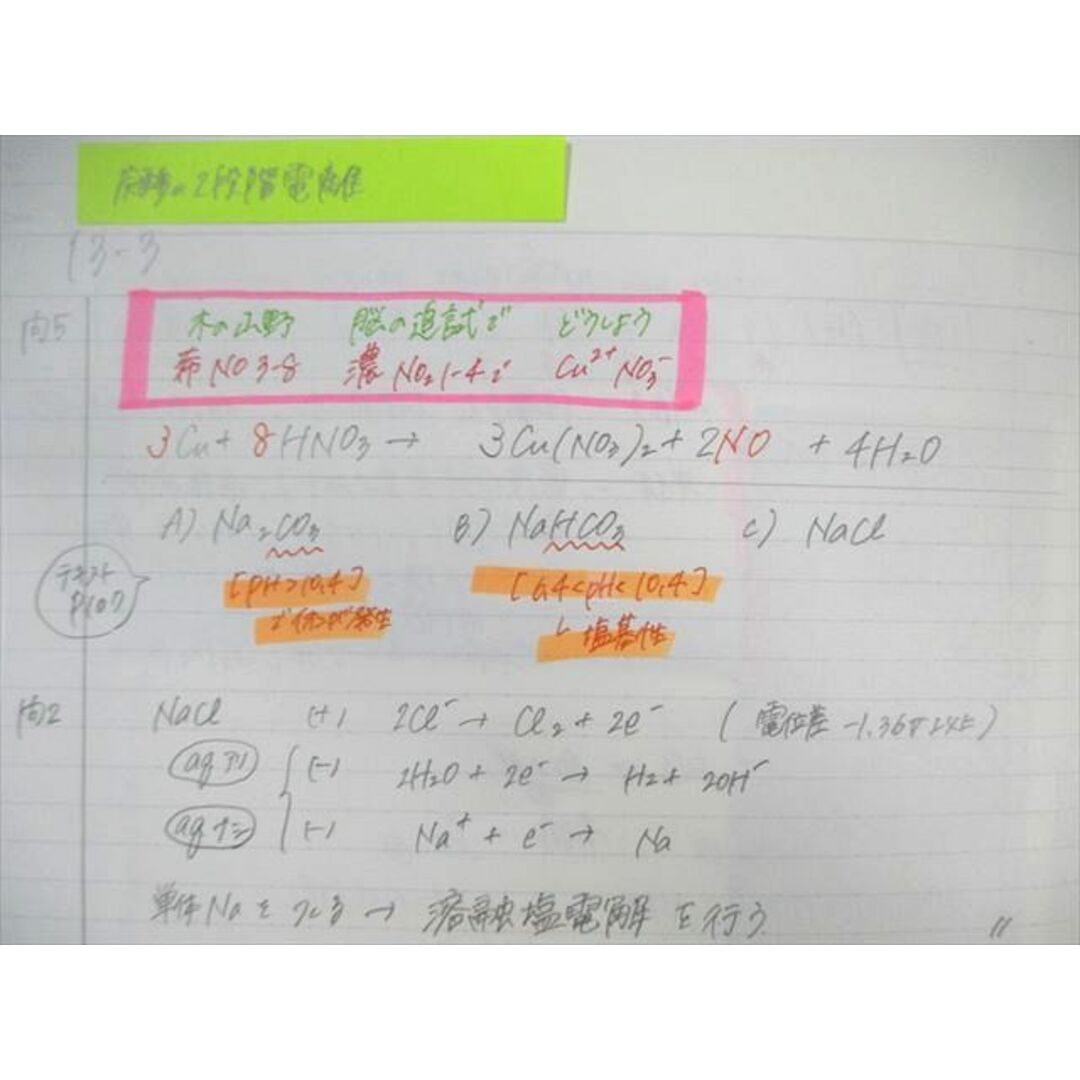 の2段階電離
13-3
問5
木の山野 脳の追試で どうしよう
希NO 3-8 濃NO₂ 1-4で Cu²⁺ NO₃⁻
3Cu + 8HNO₃ → 3Cu(NO₃)₂ + 2NO + 4H₂O
A) Na₂CO₃ B) NaHCO₃ C) NaCl
テキスト
P107
[pH>10,4] [6,4<pH<10,4]
でイオンが発生 塩基性
問2 NaCl (+) 2Cl⁻ → Cl₂ + 2e⁻ (電位差 -1.36
aqアリ (-) 2H₂O + 2e⁻ → H₂ + 2OH⁻
aqナシ (-) Na⁺ + e⁻ → Na
単体Naをつくる → 溶融塩電解を行う 〃